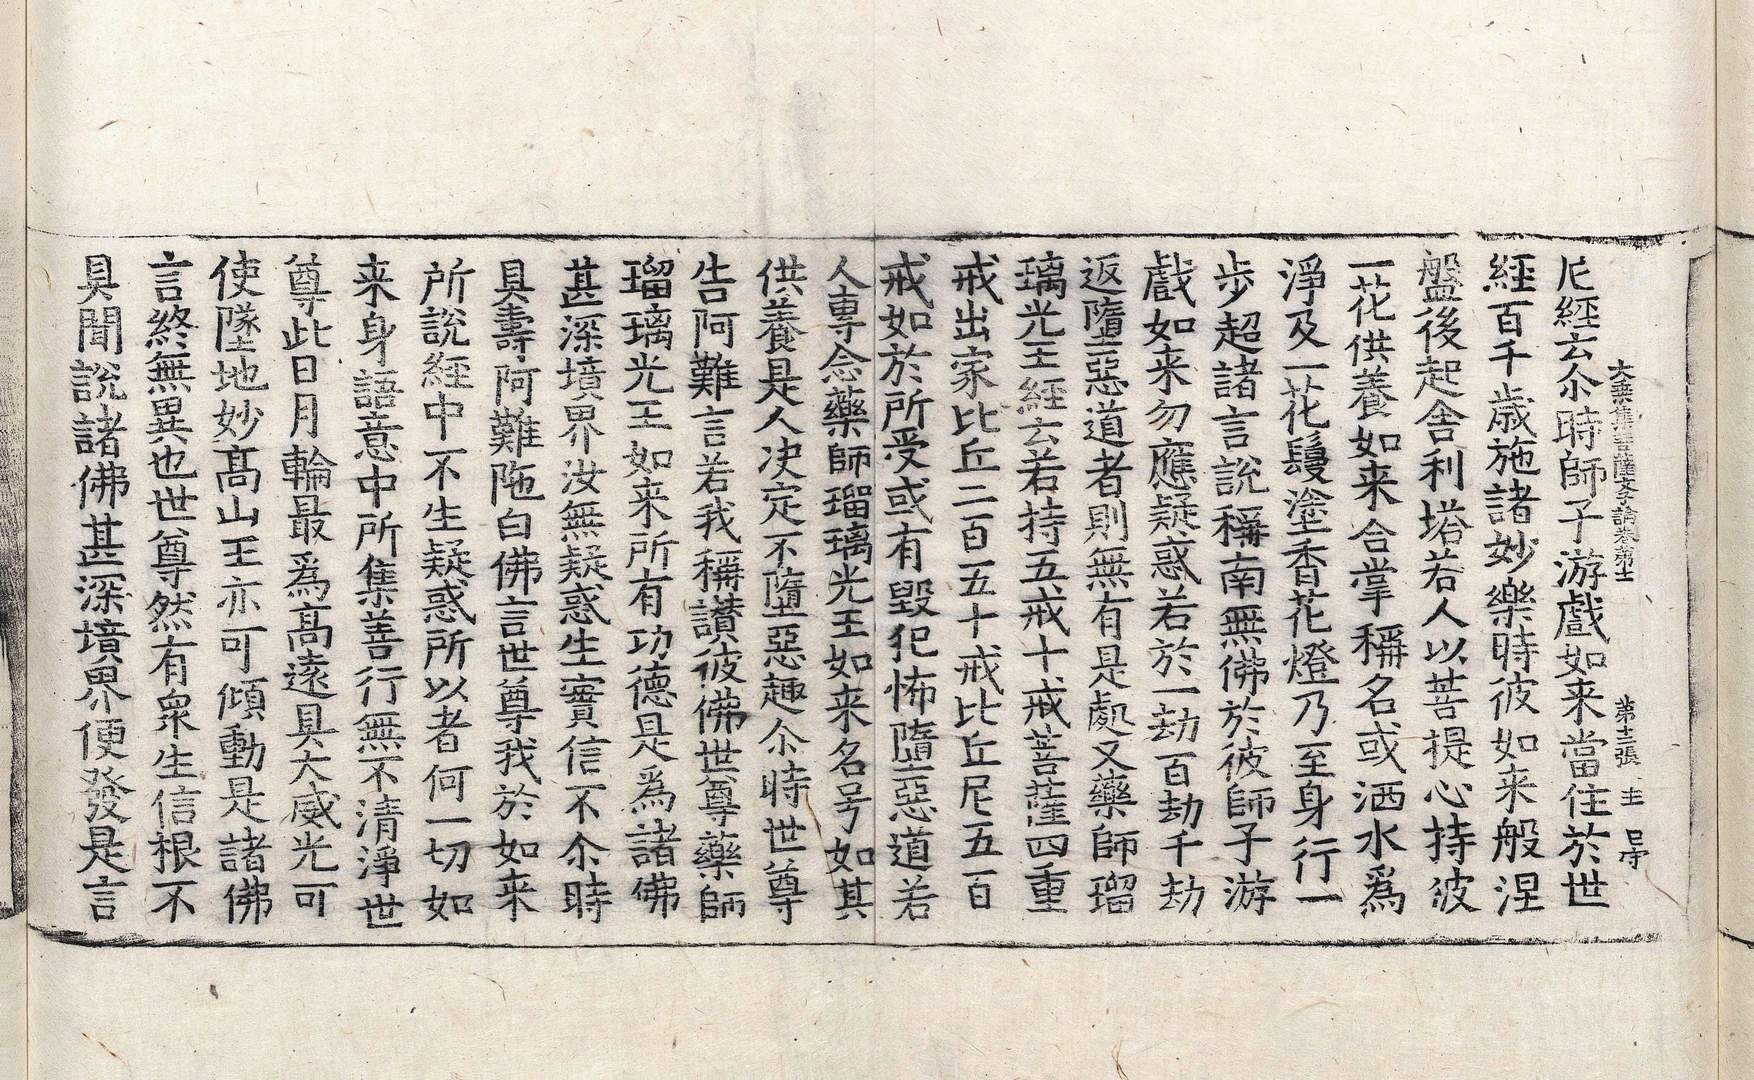 大乘集菩薩學論卷第十一 第十三張 主 号
尼經云尒時師子游戲如来當住於世
經百千歲施諸妙樂時彼如来般涅
盤後起舍利塔若人以菩提心持彼
一花供養如来合掌稱名或洒水爲
淨及一花鬘塗香花燈乃至身行一
步超諸言說稱南無佛於彼師子游
戲如来勿應疑惑若於一劫百劫千劫
返墮惡道者則無有是處又藥師瑠
璃光王經云若持五戒十戒菩薩四重
戒出家比丘二百五十戒比丘尼五百
戒如於所受或有毀犯怖墮惡道若
人專念藥師瑠璃光王如来名号如其
供養是人决定不墮惡趣尒時世尊
告阿難言若我稱讃彼佛世尊藥師
瑠璃光王如来所有功德是爲諸佛
甚深境界汝無疑惑生實信不尒時
具壽阿難陁白佛言世尊我於如来
所說經中不生疑惑所以者何一切如
来身語意中所集善行無不清淨世
尊此日月輪最爲髙遠具大威光可
使墜地妙髙山王亦可傾動是諸佛
言終無異也世尊然有衆生信根不
具聞說諸佛甚深境界便發是言